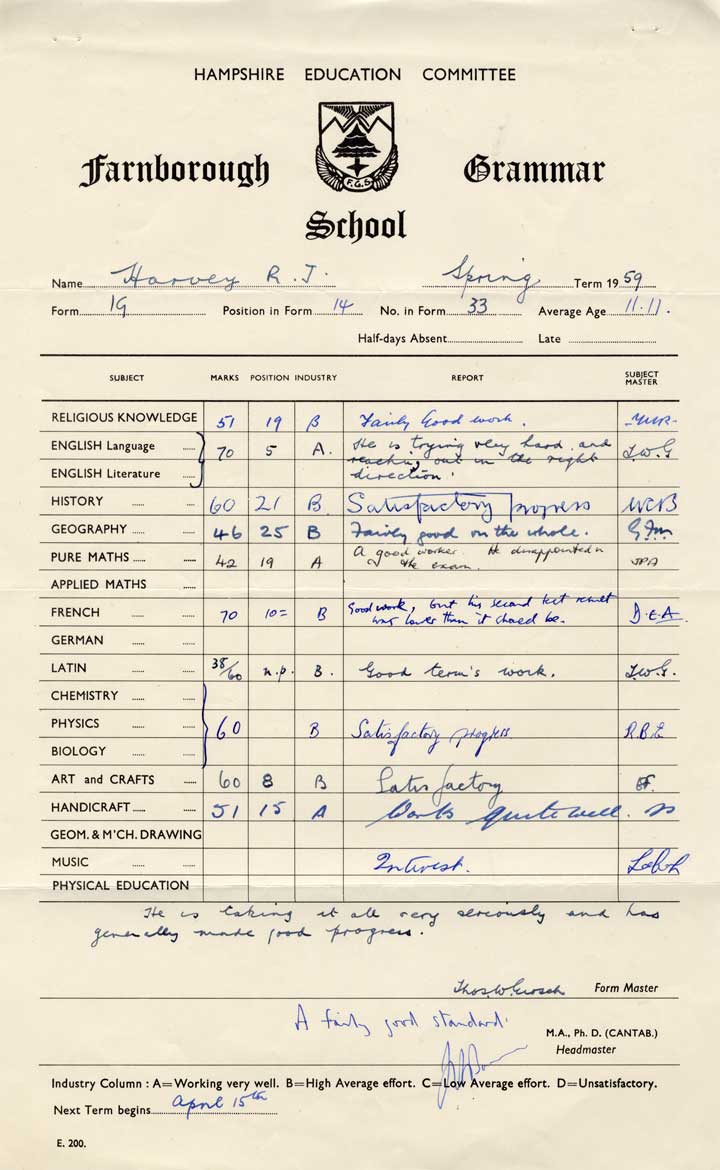 HAMPSHIRE EDUCATION COMMITTEE
Farnborough Grammar
F.G.S
School
Name Harvey R. J. Spring Term 1959
Form 1G Position in Form 14 No. in Form 33 Average Age 11.11.
Half-days Absent Late
SUBJECT MARKS POSITION INDUSTRY REPORT SUBJECT MASTER
RELIGIOUS KNOWLEDGE 51 19 B Fairly Good work.
ENGLISH Language 70 5 A. He is trying very hard and
ENGLISH Literature reaching out in the right
direction. T.W.G
HISTORY 60 21 B Satisfactory progress WCB
GEOGRAPHY 46 25 B Fairly good on the whole.
PURE MATHS 42 19 A A good worker. He disappointed in
the exam. JPA
APPLIED MATHS
FRENCH 70 10= B Good work, but his second test result
was lower than it should be. D.E.A.
GERMAN
LATIN 38/60 n.p. B. Good term's work. T.W.G.
CHEMISTRY
PHYSICS 60 B Satisfactory progress R.B.E
BIOLOGY
ART and CRAFTS 60 8 B Satisfactory
HANDICRAFT 51 15 A Works quite well.
GEOM. & M'CH. DRAWING
MUSIC Interest.
PHYSICAL EDUCATION
He is taking it all very seriously and has
generally made good progress.
Thos. W. Grosch Form Master
A fairly good standard.
M.A., Ph. D. (CANTAB.)
Headmaster
Industry Column : A=Working very well. B=High Average effort. C=Low Average effort. D=Unsatisfactory.
Next Term begins April 15th
E. 200.